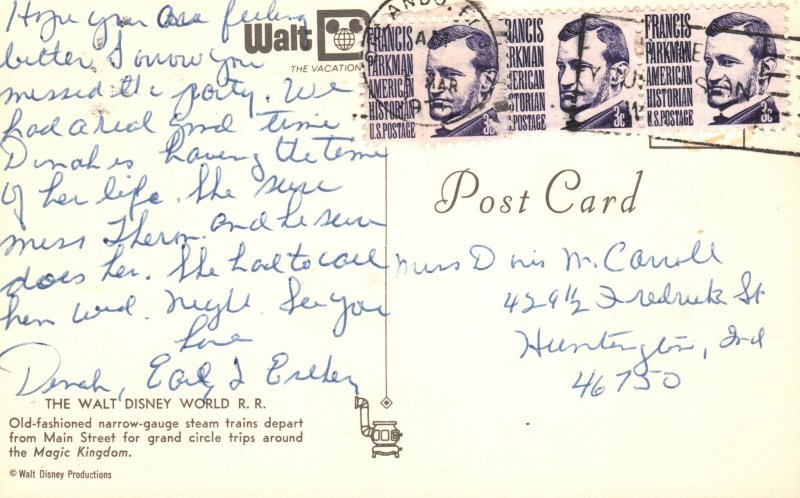 Hope you are feeling
better. I know you
missed the party. We
had a real good time
Dinah is having the time
of her life. She sure
miss Therm. and he sure
does her. She had to call
him wed. night. See you
Love
Dinah, Earl & Esther
THE WALT DISNEY WORLD R. R.
Old-fashioned narrow-gauge steam trains depart
from Main Street for grand circle trips around
the Magic Kingdom.
© Walt Disney Productions
Walt D
THE VACATION
FRANCIS
PARKMAN
AMERICAN
HISTORIAN
U.S. POSTAGE
3c
FRANCIS
PARKMAN
AMERICAN
HISTORIAN
U.S. POSTAGE
3c
FRANCIS
PARKMAN
AMERICAN
HISTORIAN
U.S. POSTAGE
3c
MAR
Post Card
Miss Doris M. Carroll
429 1/2 Fredrick St
Huntington, Ind
46750